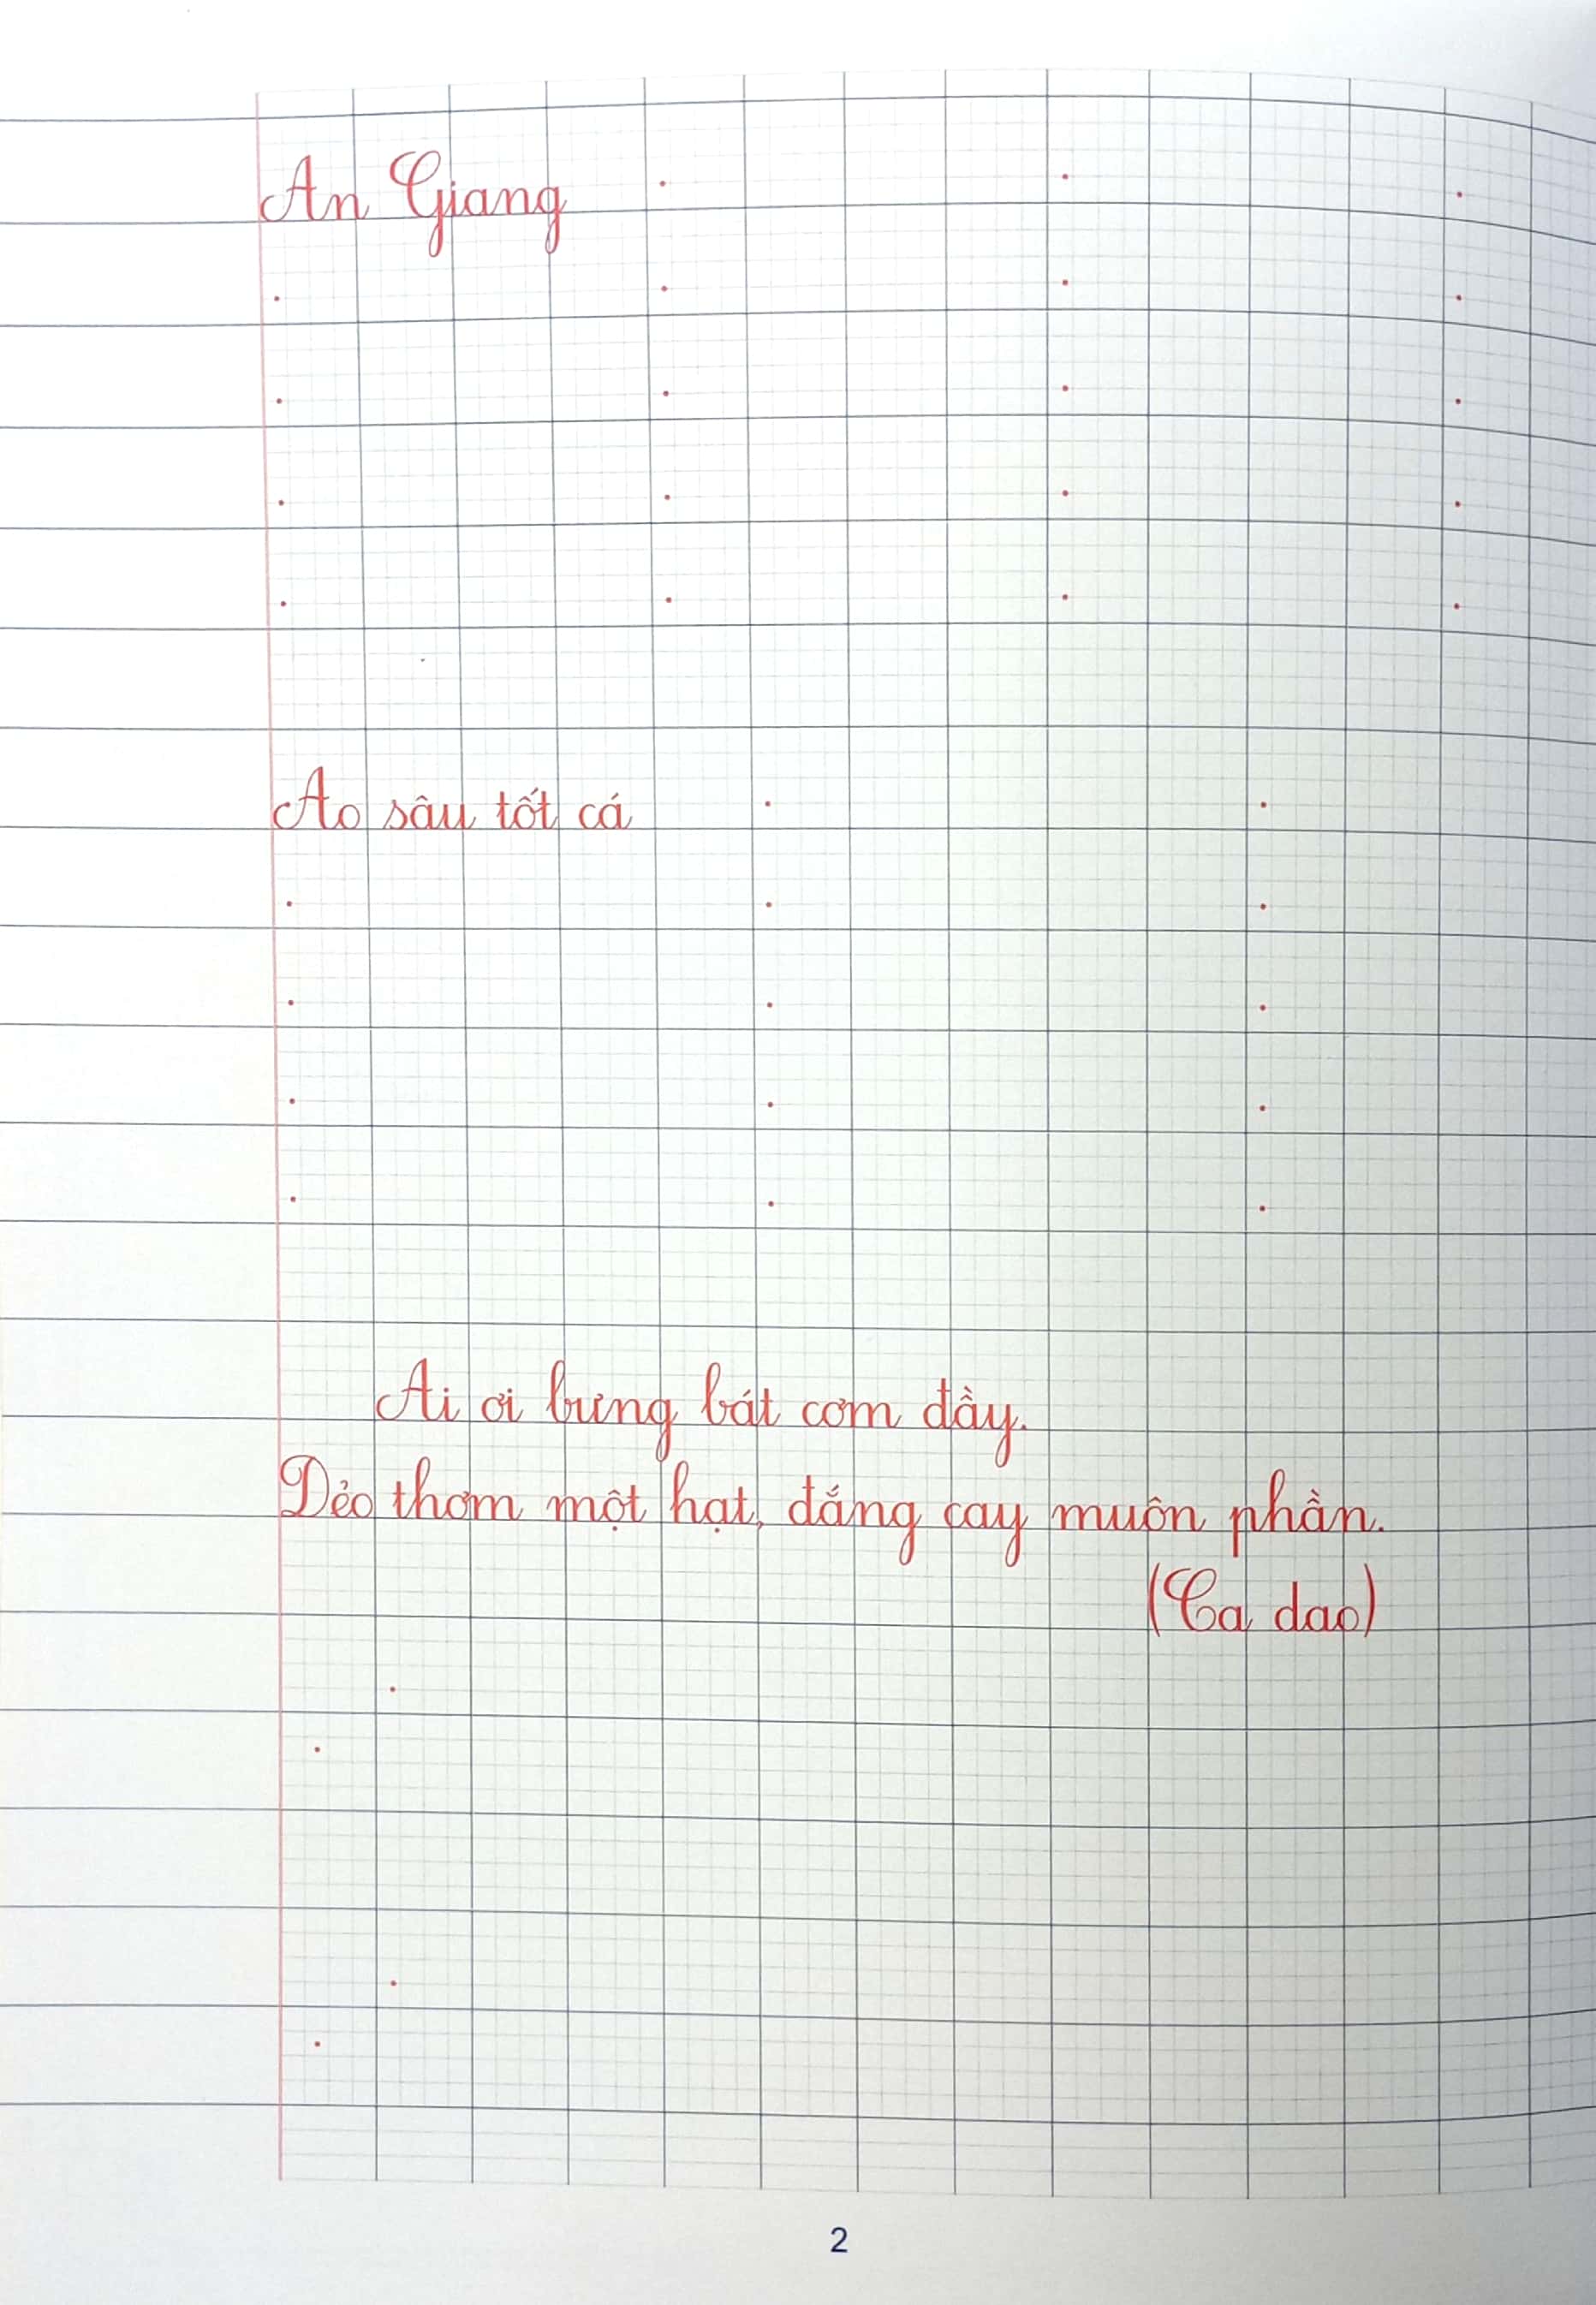 An Giang
Ao sâu tốt cá
Ai ơi bưng bát cơm đầy.
Dẻo thơm một hạt, đắng cay muôn phần.
(Ca dao)
2